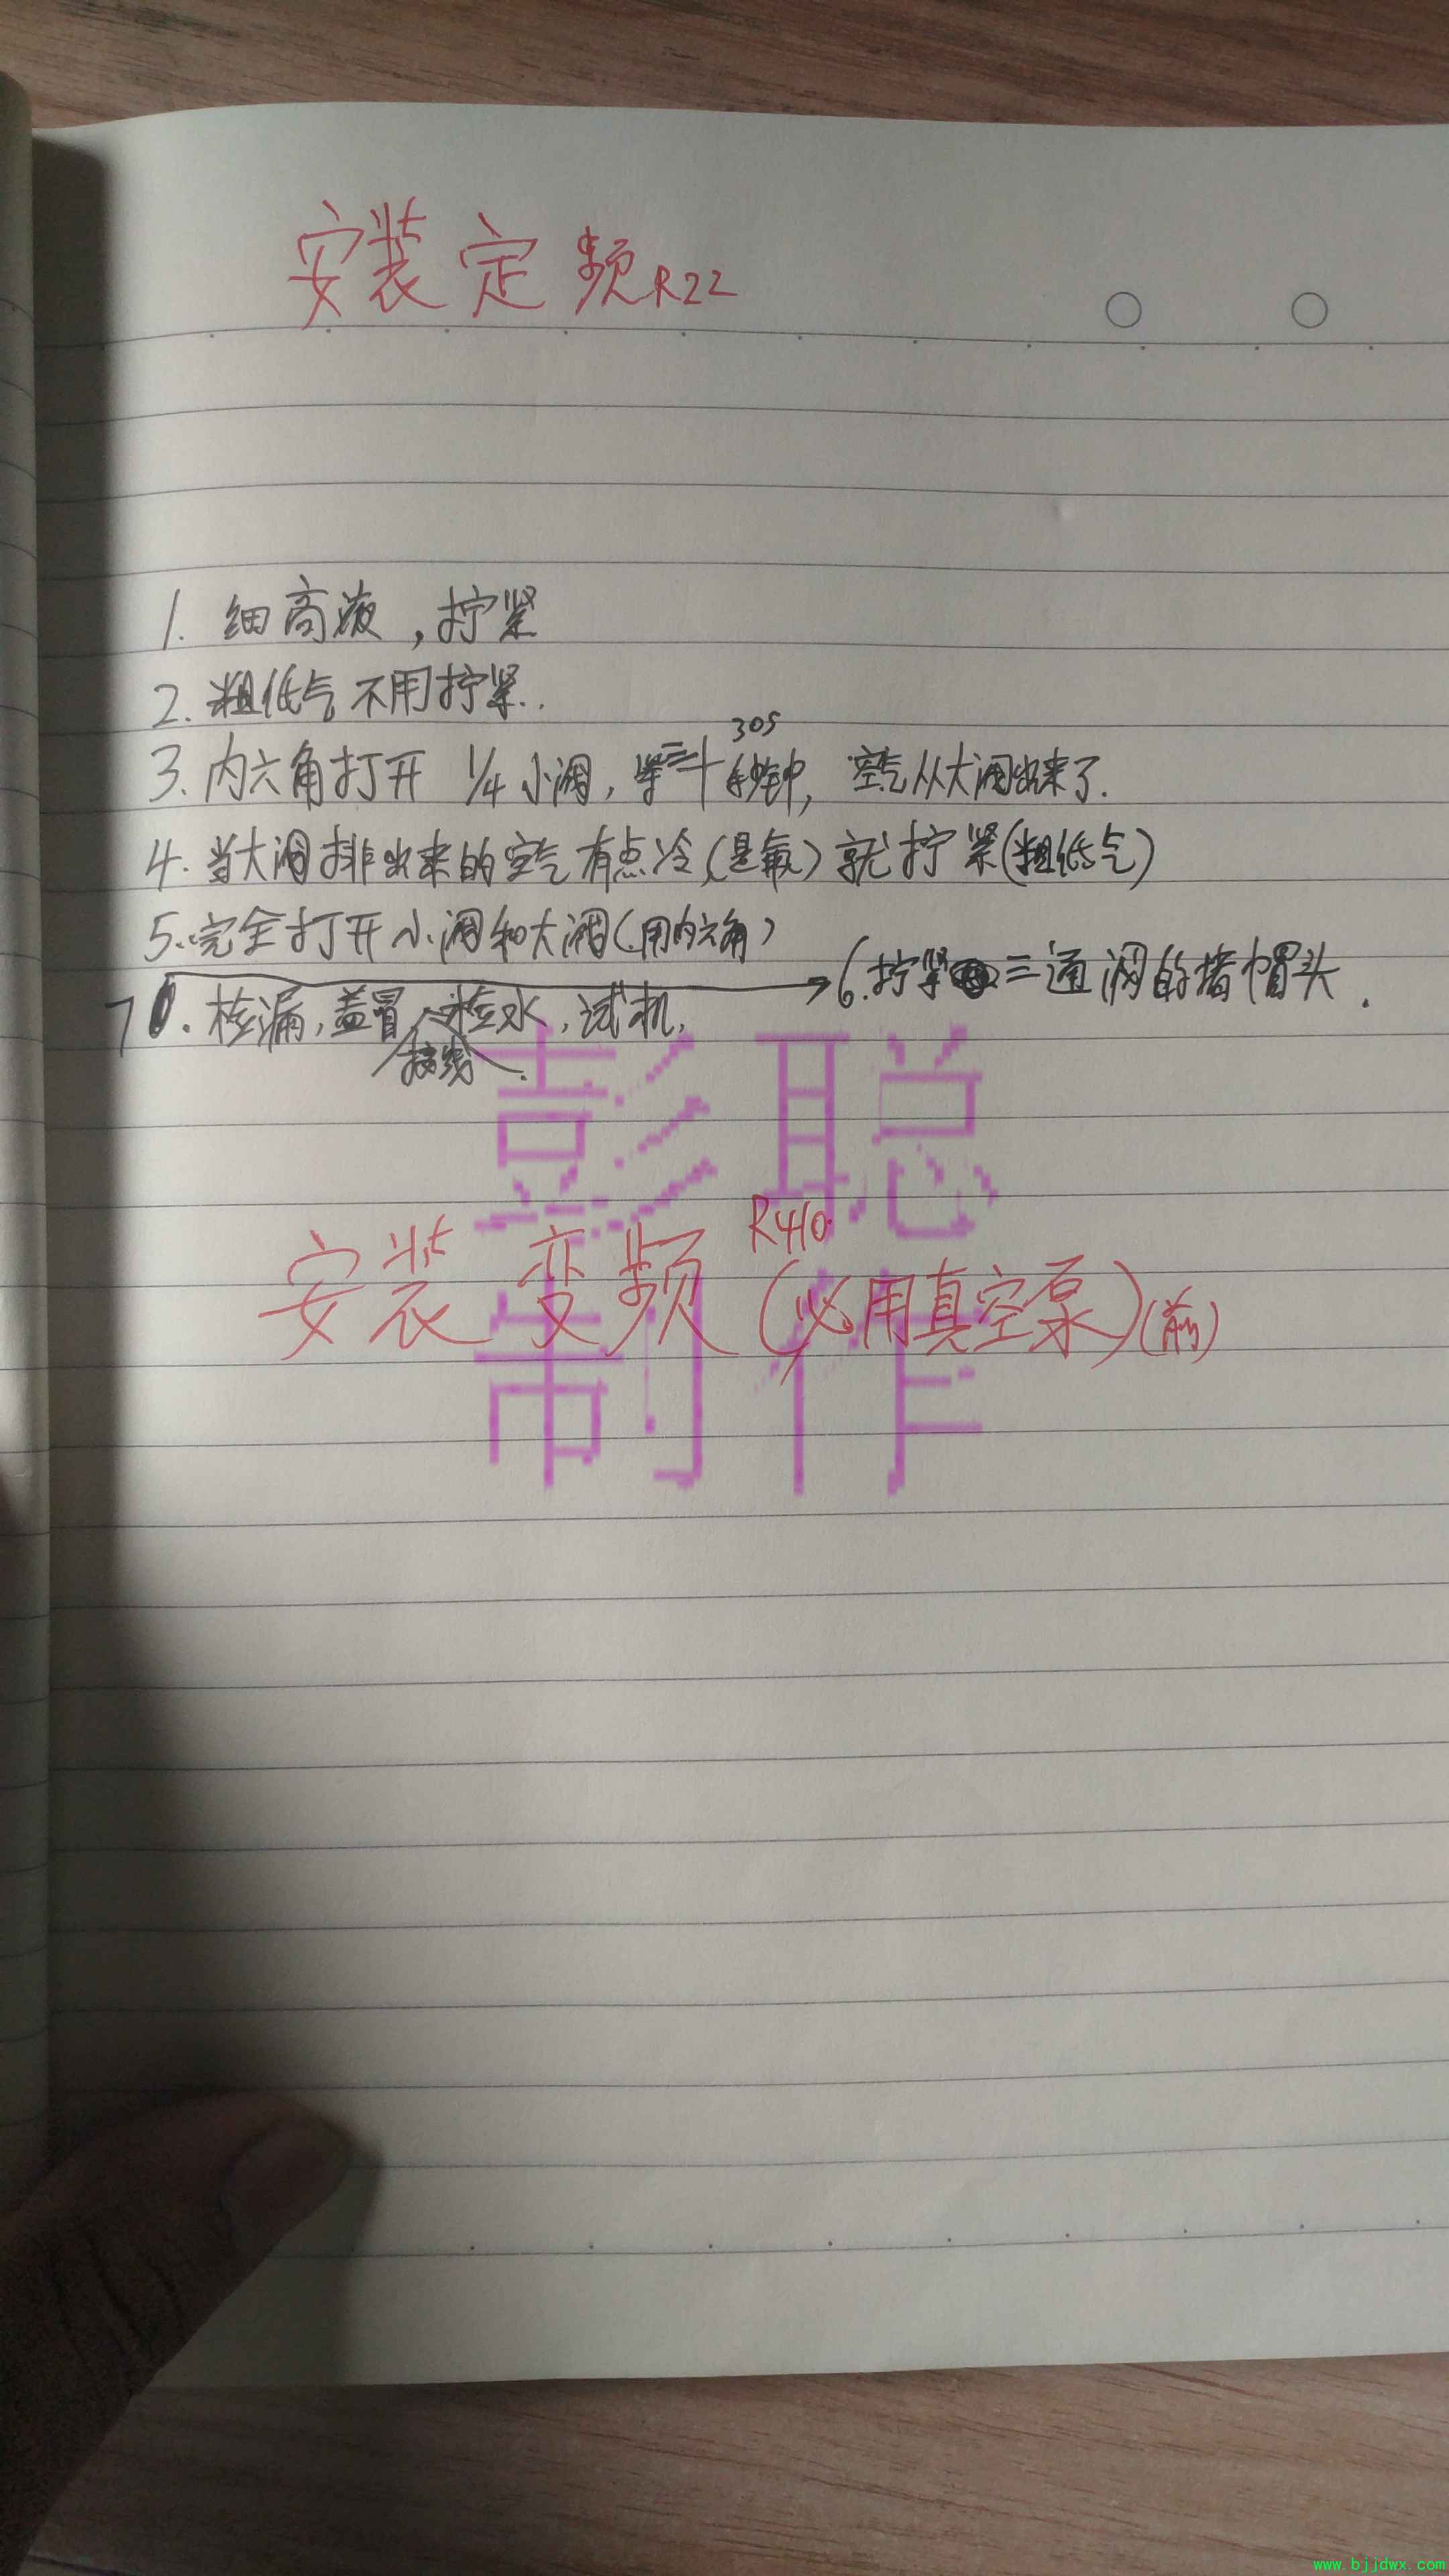 安装定频R22
1. 细高液,拧紧
2. 粗低气不用拧紧..
30S
3. 内六角打开 1/4 小阀, 等三十秒钟, 空气从大阀出来了.
4. 当大阀排出来的空气有点冷(是氟)就拧紧(粗低气)
5. 完全打开小阀和大阀(用内六角)
6. 拧紧三通阀的堵帽头.
7. 检漏,盖冒 检水,试机,
接线
彭聪
制作
R410
安装变频(必用真空泵)(前)
www.bjjdwx.com